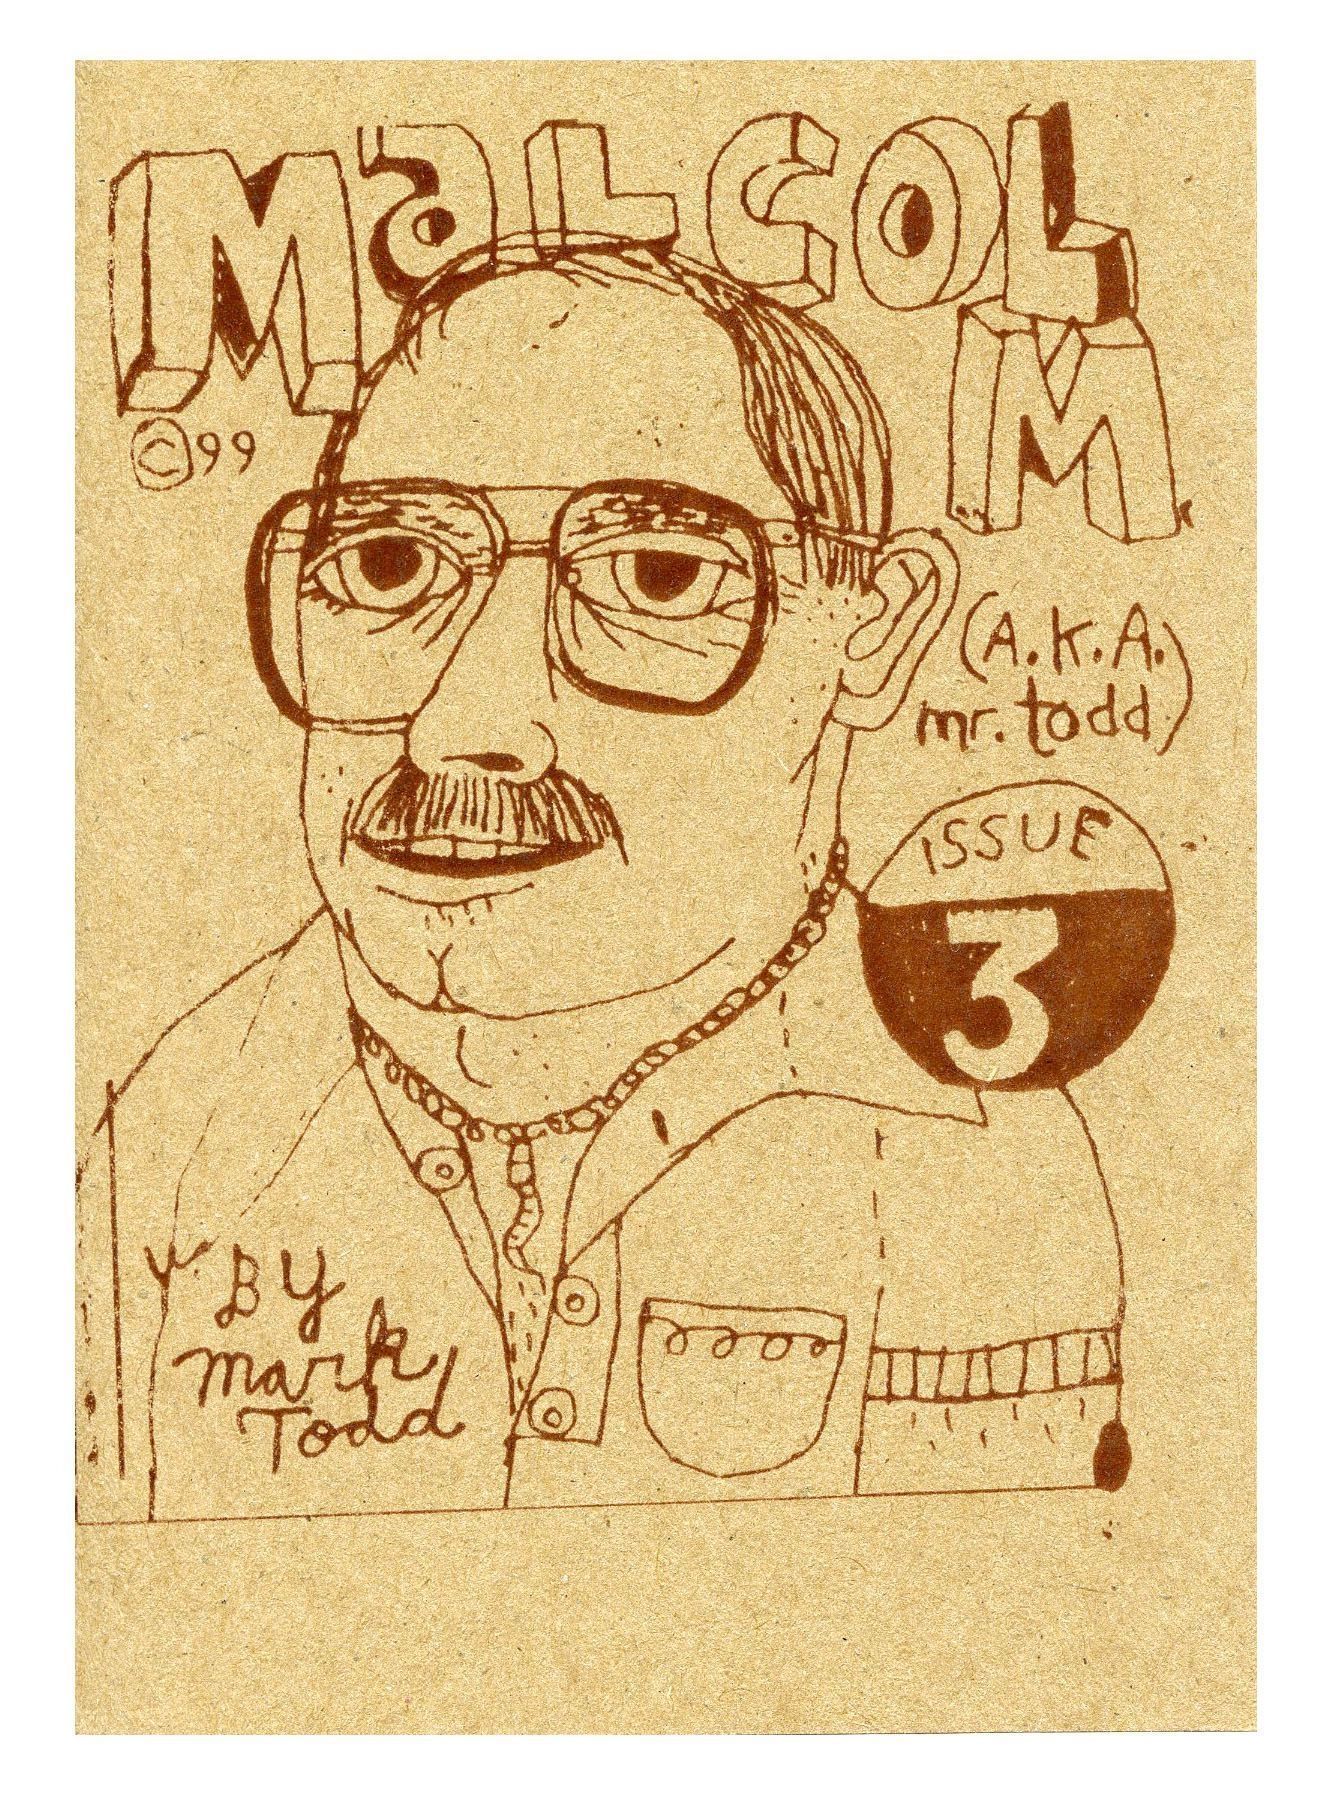 MaLCOL
M
©99
(A.K.A.
mr. todd)
ISSUE
3
BY
mark
Todd